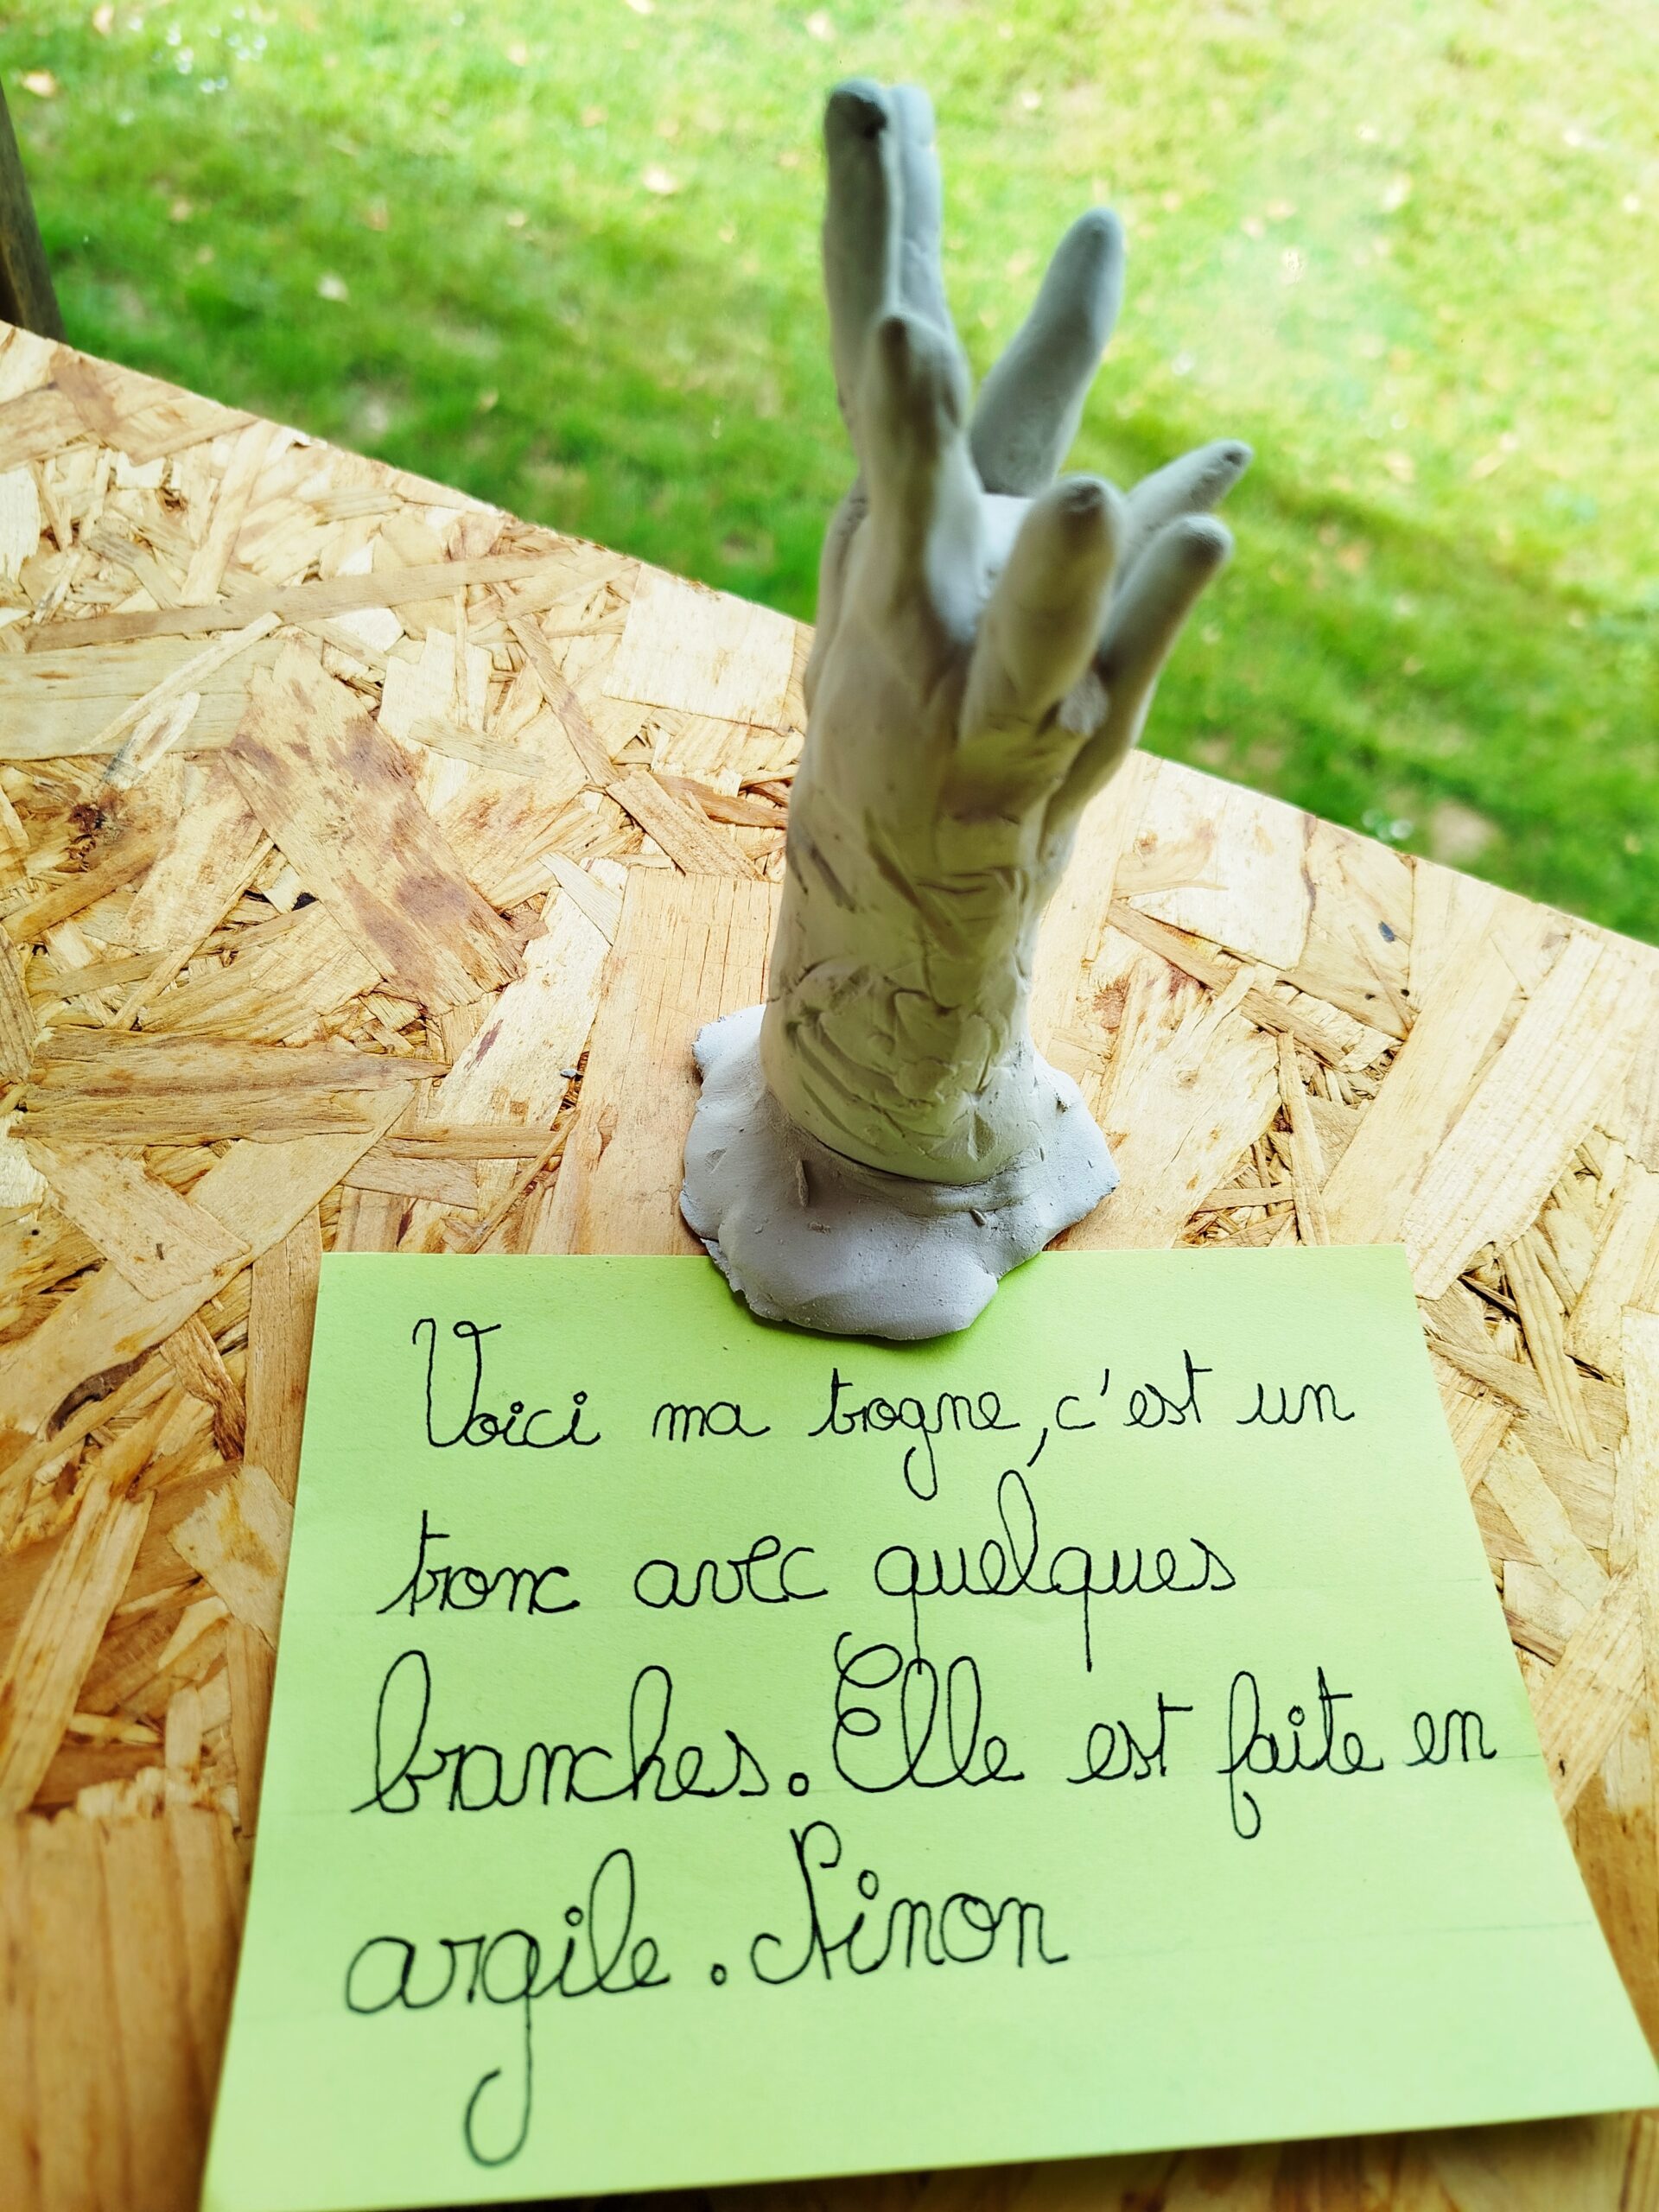 Voici ma trogne, c'est un
tronc avec quelques
branches. Elle est faite en
argile. Ninon